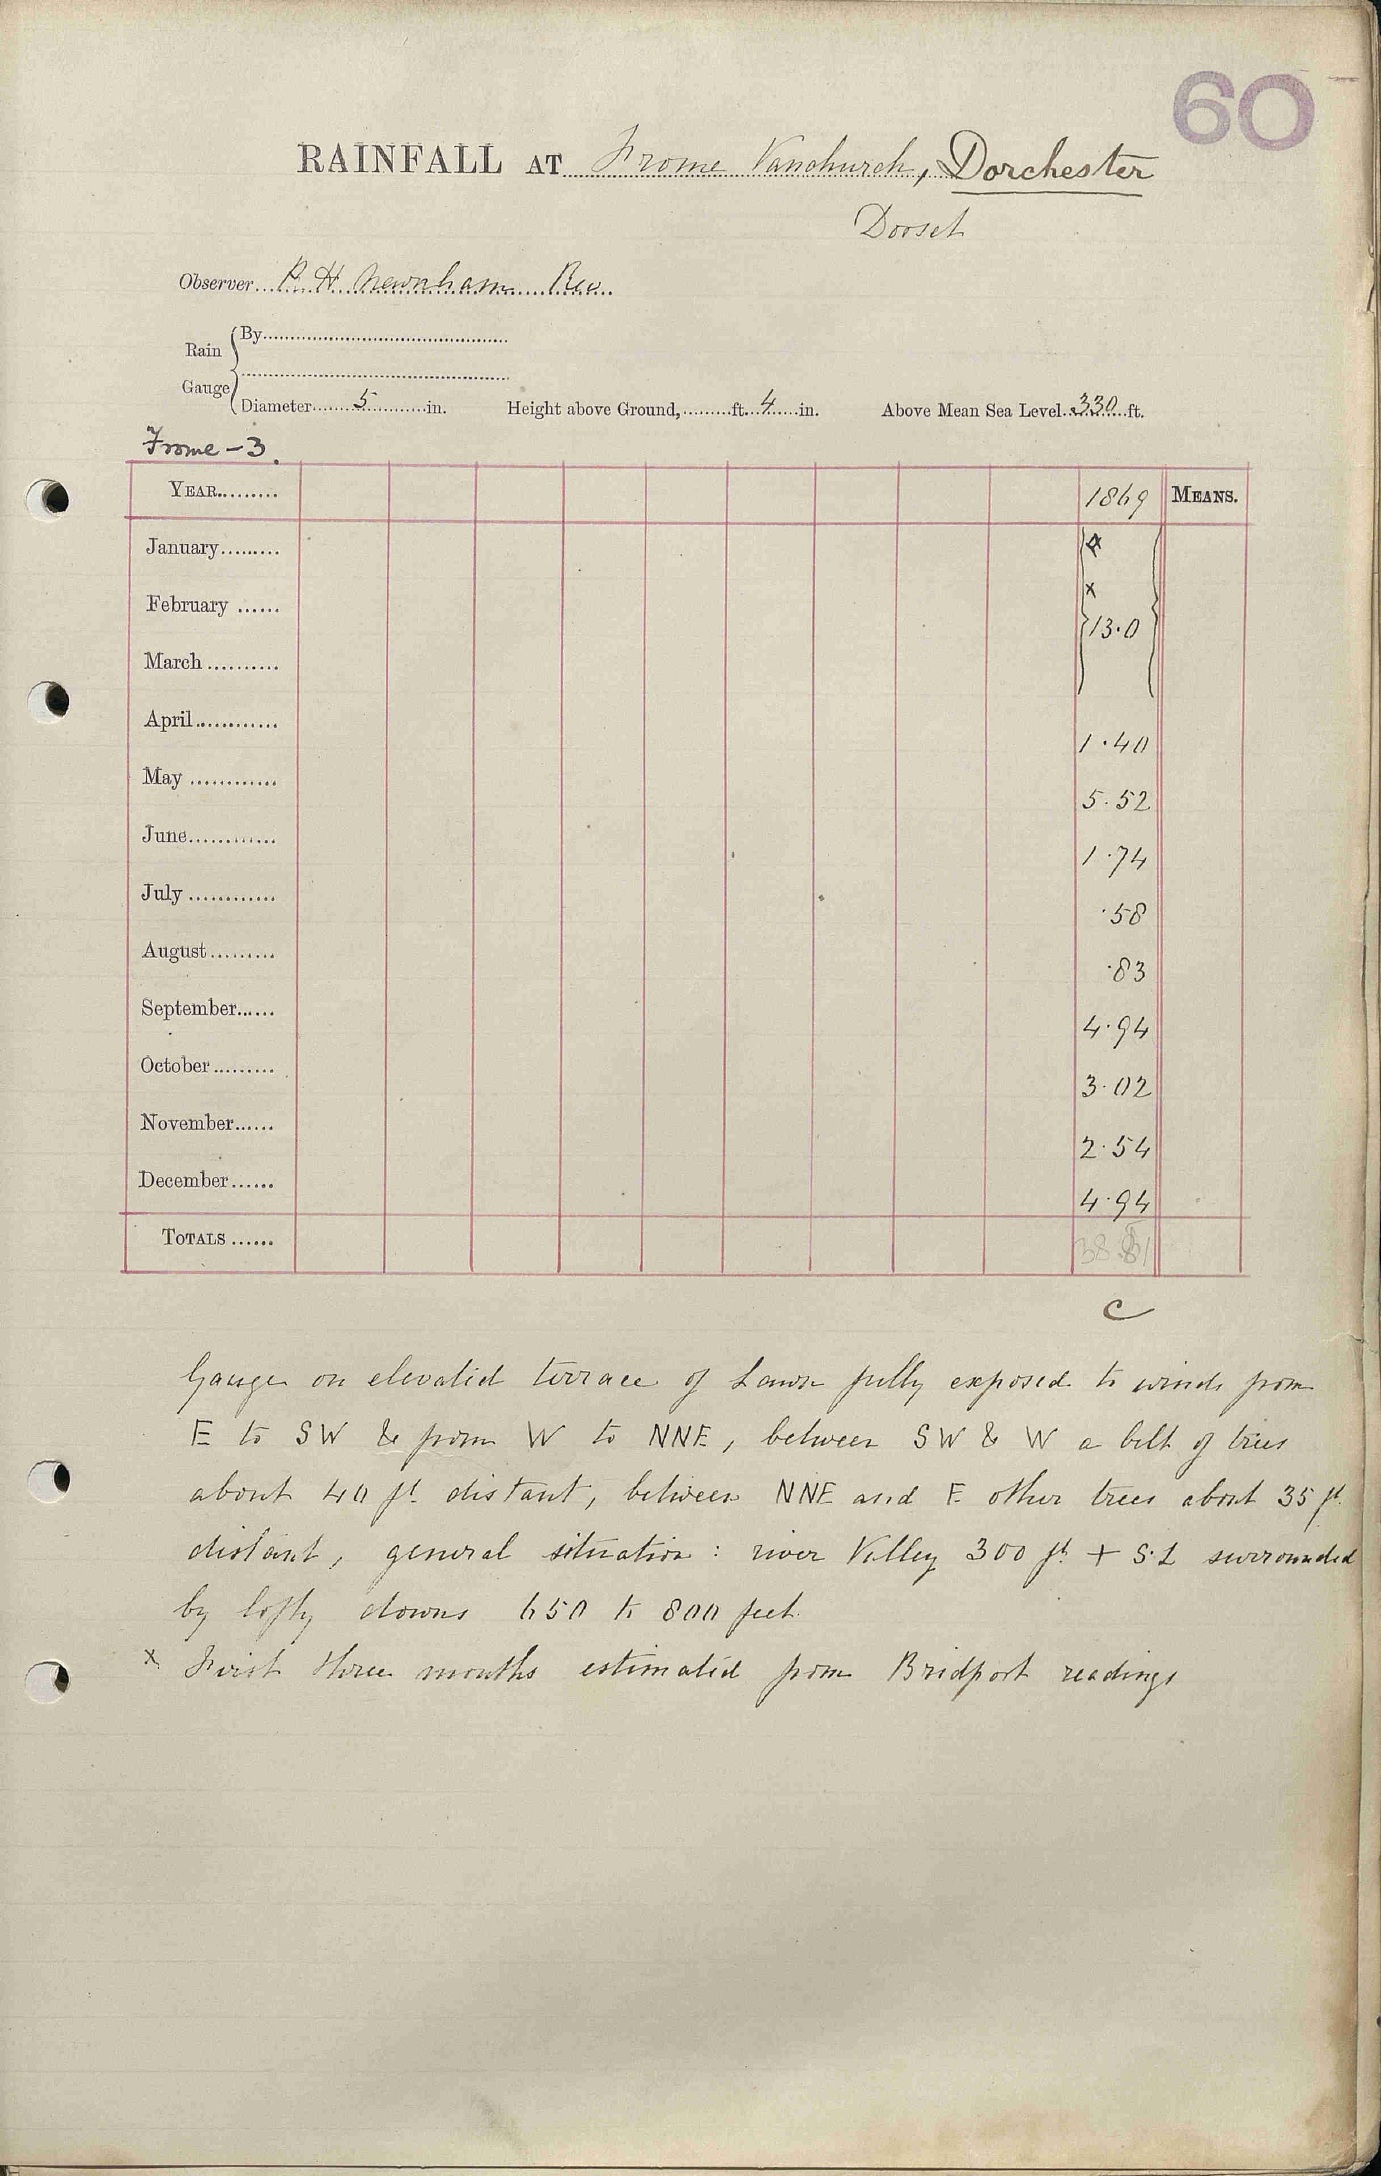 60
RAINFALL AT Frome Vanchurch, Dorchester
Dorset
Observer P. H. Newnham Rev.
Rain Gauge
By
Diameter 5 in. Height above Ground, ft. 4 in. Above Mean Sea Level 330 ft.
Frome - 3.
YEAR 1869 MEANS.
January x
February x
13.0
March
April 1.40
May 5.52
June 1.74
July .58
August .83
September 4.94
October 3.02
November 2.54
December 4.94
TOTALS 38.51
C
Gauge on elevated terrace of Lawn fully exposed to winds from
E to SW & from W to NNE, between SW & W a belt of trees
about 40 ft. distant, between NNE and E other trees about 35 ft.
distant, general situation : river Valley 300 ft + S.L surrounded
by lofty downs 650 to 800 feet.
x First three months estimated from Bridport readings